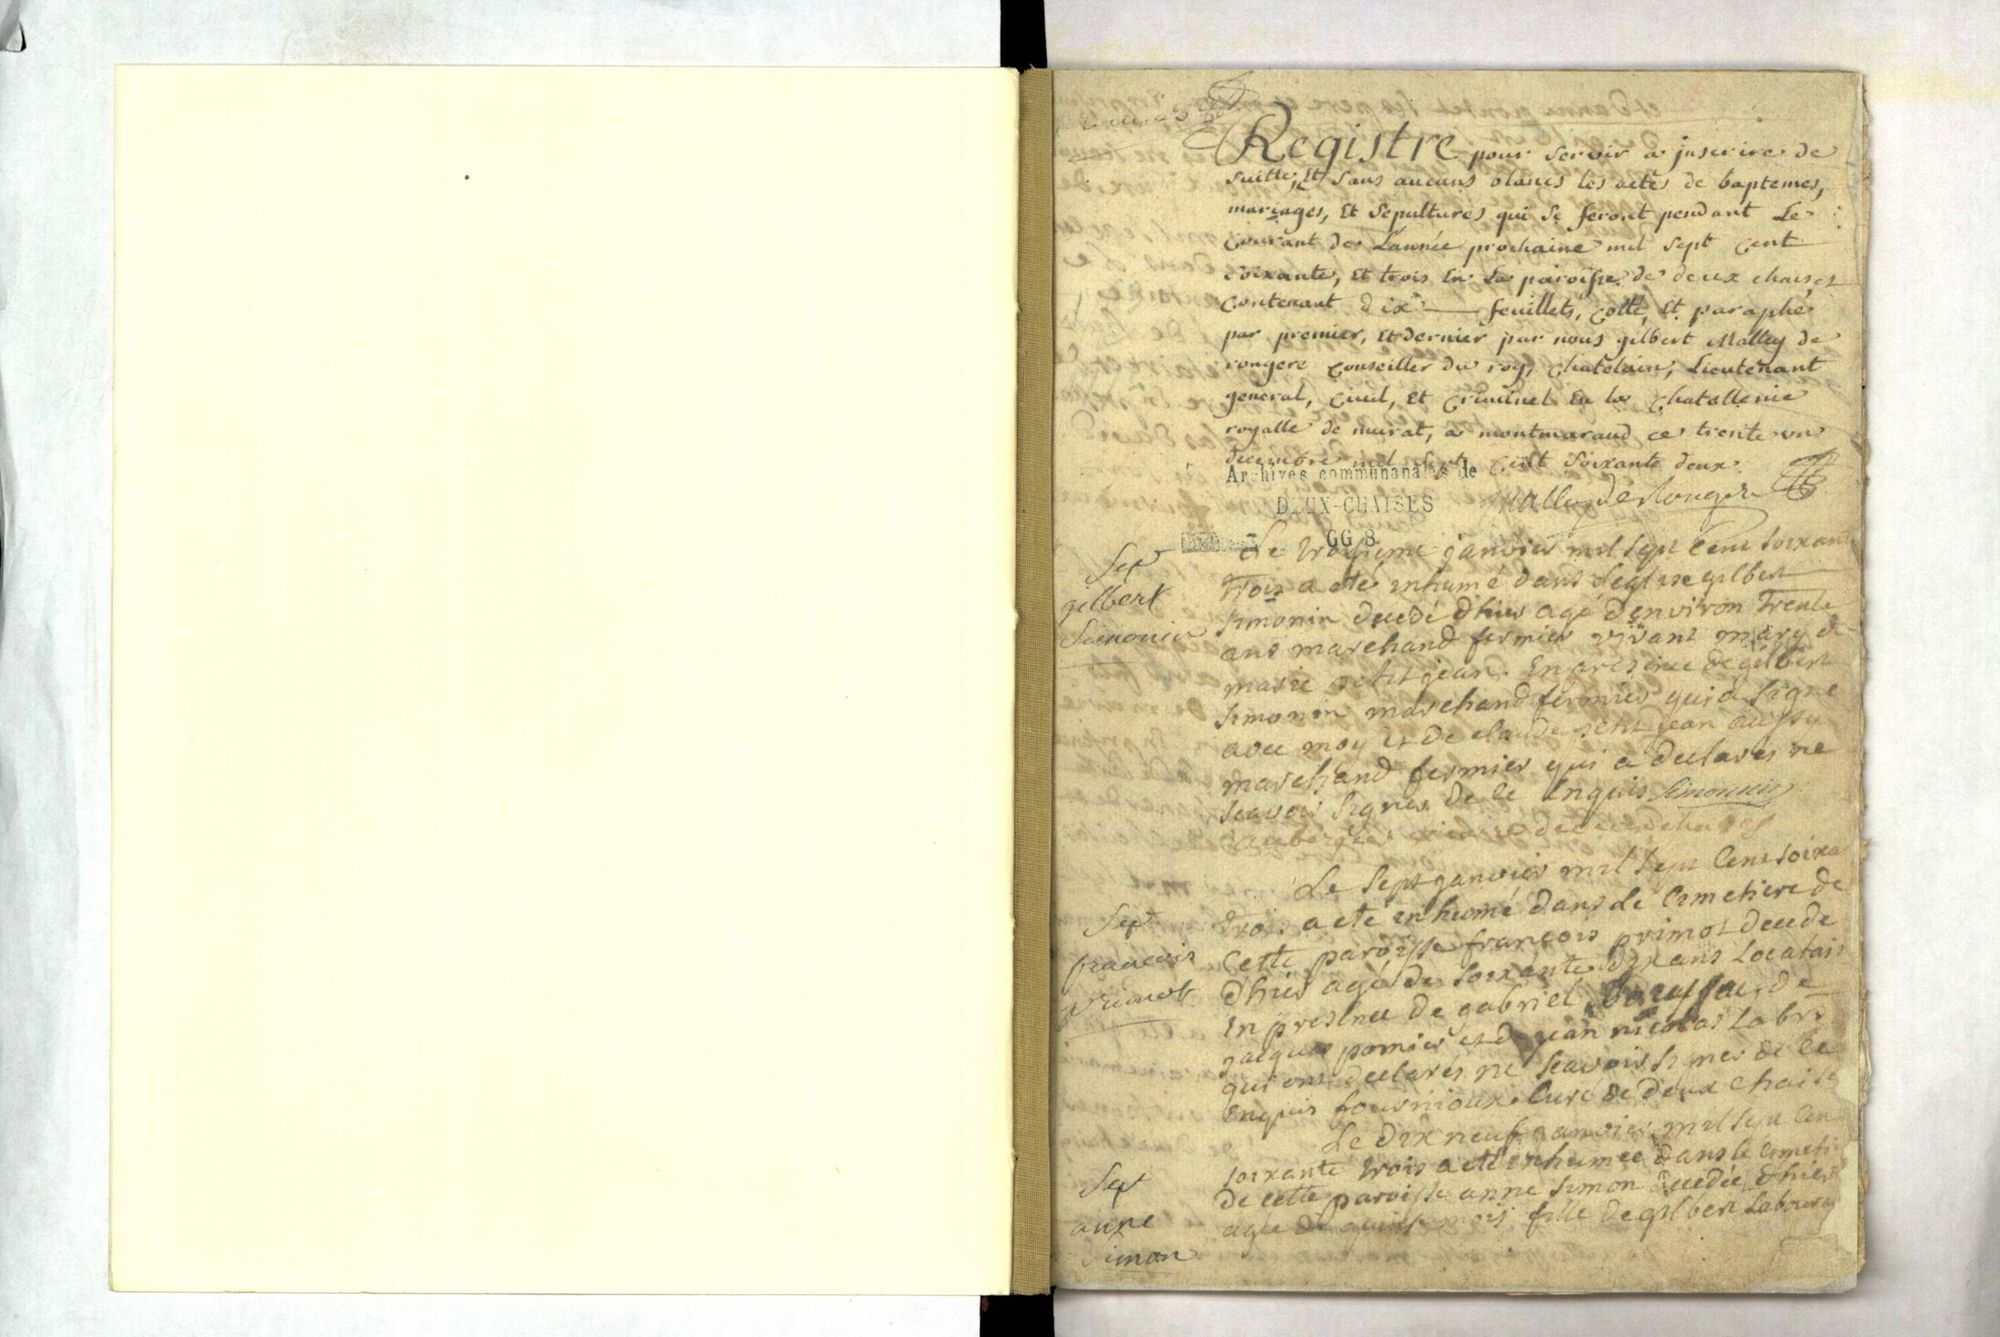 Registre pour servir a inscrire de
suitte, Et sans aucuns blancs les actes de baptemes,
mariages, Et sépultures qui se feront pendant Le
Courant de L'année prochaine mil sept cent
soixante, Et trois En La paroisse de deux chaises
Contenant dix feuillets, Cotté, Et paraphé
par premier, Et dernier par nous gilbert Malley de
rongere Conseiller du roy, Chatelain, Lieutenant
general, Civil, Et Criminel En la Chatellenie
royalle de murat, a montmaraud ce trente un
decembre mil sept cent soixante deux.
Malley de Rongere
Archives communanales de
DEUX-CHAISES
GG 8.
Sep
gilbert
Simonin
Le troisieme janvier mil sept Cent soixante
trois a eté inhumé dans L'eglise gilbert
simonin decedé d'hier agé d'environ trente
ans marchand fermier vivant mary de
marie petit jean. En presence de gilbert
simonin marchand fermier qui a signé
avec moy et de claude petit jean aussy
marchand fermier qui a declarer ne
scavoir signer de ce Enquis Simonin
auberger vicaire de deux chaises
Sep
francois
primot
Le sept janvier mil sept Cent soixante
trois a eté inhumé dans Le Cimetiere de
Cette paroisse francois primot decedé
d'hier agé de soixante dix ans Locataire
En presence de gabriel de
jacques pomier et de jean nicolas Labr
qui ont declarés ne scavoir signer de Ce
Enquis fournioux Curé de deux Chaises
Sep
anne
simon
Le dix neuf janvier mil sept Cent
soixante trois a eté inhumée dans le Cimetiere
de cette paroisse anne simon decedée d'hier
agée de quinze mois fille de gilbert Laboureur